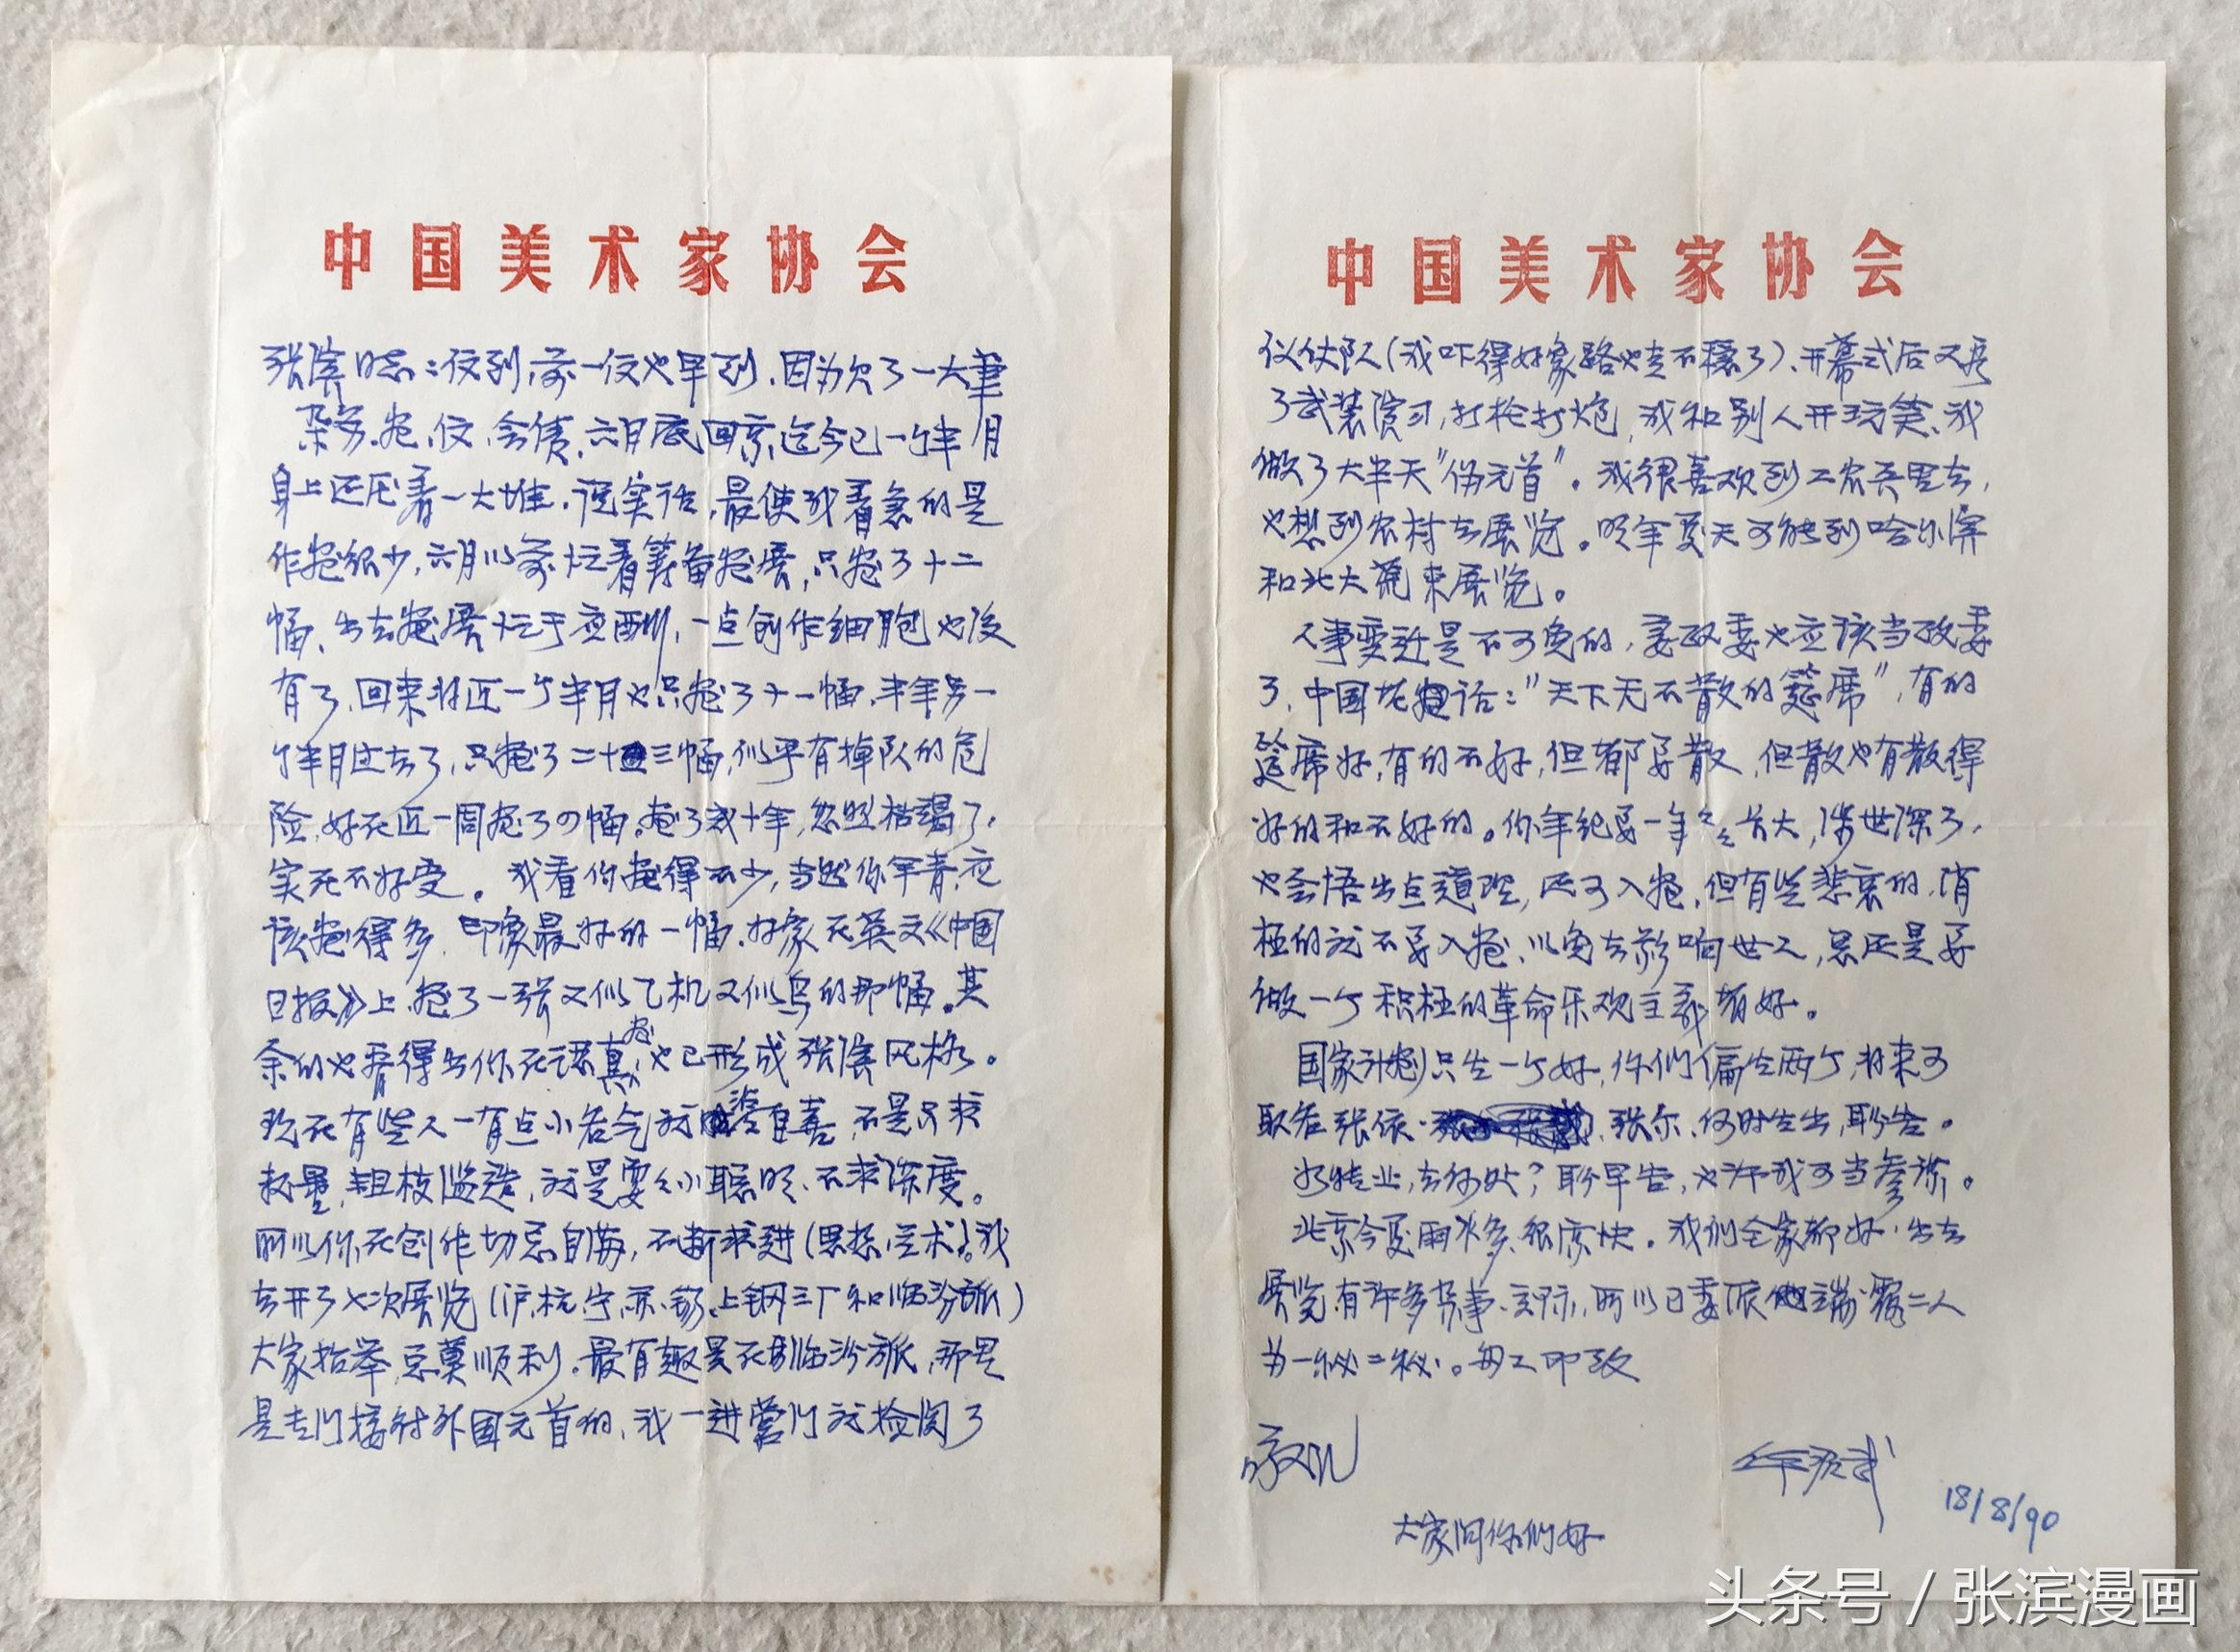 中国美术家协会
张滨同志：信到，前一信也早到，因为欠了一大笔
杂务、画、信、会债，六月底回京，迄今已一个半月
身上还压着一大堆。说实话，最使我着急的是
作画很少，六月以前忙着筹备画展，只画了十二
幅，出去画展忙于应酬，一点创作细胞也没
有了，回来将近一个半月也只画了十一幅，半年多一
个半月过去了，只画了二十三幅，似乎有掉队的危
险，好在近一周画了四幅。画了几十年，忽然枯竭了，
实在不好受。我看你画得不少，当然你年青，应
该画得多。印象最好的一幅，好象在英文《中国
日报》上，画了一张又似飞机又似鸟的那幅。其
余的也看得出你在认真画，也已形成张滨风格。
现在有些人一有点小名气就沾沾自喜，不是只求
数量，粗枝滥造，就是耍耍小聪明，不求深度。
所以你在创作切忌自满，不断求进（思想、艺术）。我
去开了七次展览（沪、杭、宁、苏、锡、上钢三厂和临汾旅）
大家抬举，总算顺利。最有趣是在临汾旅，那是
是专门接待外国元首的，我一进营门就检阅了
中国美术家协会
仪仗队（我吓得好象路也走不稳了），开幕式后又看
了武装演习，打枪打炮，我和别人开玩笑，我
做了大半天“伪元首”。我很喜欢到工农兵里去，
也想到农村去展览。明年夏天可能到哈尔滨
和北大荒来展览。
人事变迁是不可免的，姜政委也应该当政委
了，中国老话：“天下无不散的筵席”，有的
筵席好，有的不好，但都要散，但散也有散得
好的和不好的。你年纪要一年年大，涉世深了，
也会悟出点道理，还可入画，但有些悲哀的，消
极的就不要入画，以免去影响世人，总还是要
做一个积极的革命乐观主义者好。
国家计划只生一个好，你们偏生两个，将来可
取名张依、张尔，何时生出，盼告。
如转业，去何处？盼早告，也许我可当参谋。
北京今夏雨水多，很凉快。我们全家都好，出去
展览有许多杂事、交际，所以已委派端、霞二人
为一秘二秘。匆匆即致
敬礼
华君武
18/8/90
大家问你们好
头条号 / 张滨漫画